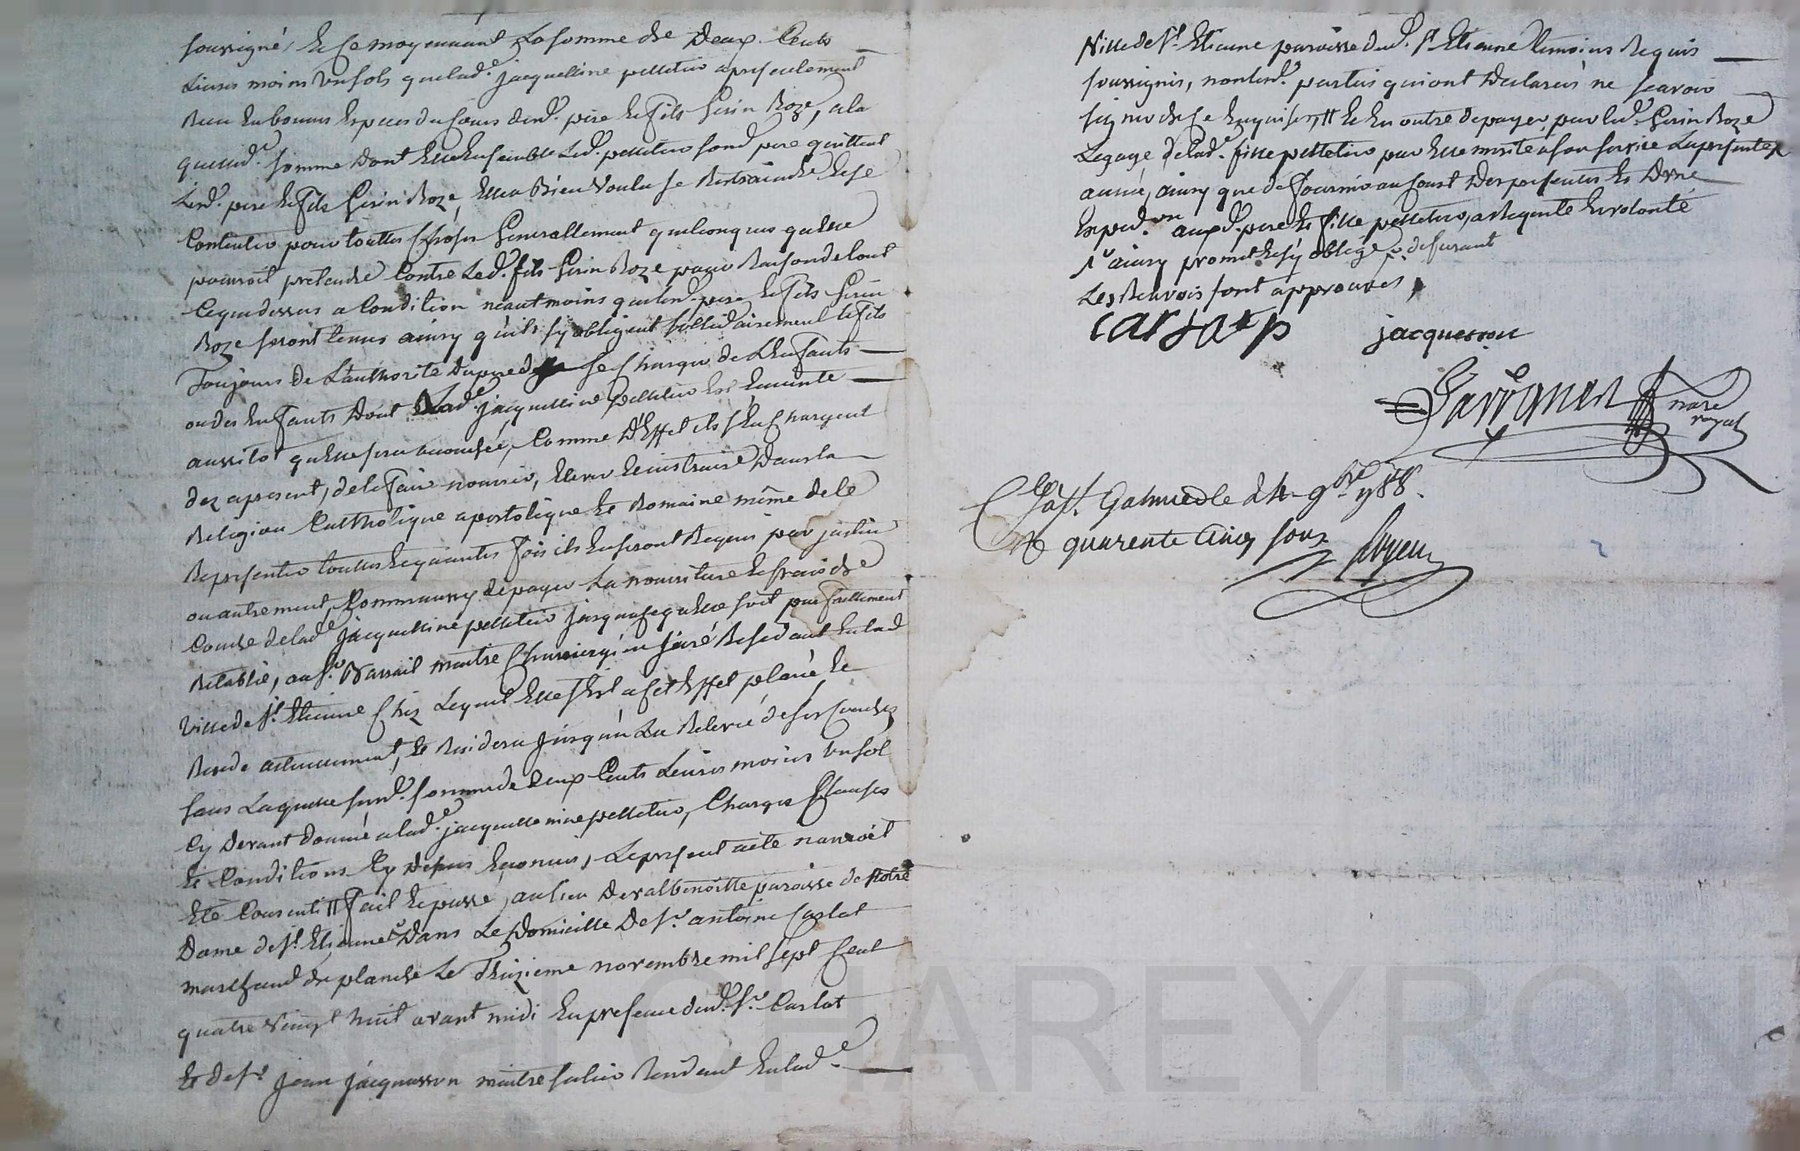 soussigné, Et ce moyennant La somme de Deux Cents
Livres moins Un sols que lad.e jacquelline pelletier a presentement
Recu En bonnes Especes du sieurs dud. pere Et fils Gerin Roze, a la
quelle somme Dont Elle Ensemble Led. pelletier son d. pere quittent
Lesd. pere Et fils Gerin Roze, Elle a Bien Voulu se Restraindre Et se
Contenter pour touttes Choses Generallement quelconques qu'elle
pourroit pretendre Contre Led. fils Gerin Roze pour Raison de tout
Ce que dessus a Condition neantmoins que lesd. pere Et fils Gerin
Roze seront tenus ainsy qu'ils sy obligent sollidairement le fils
Toujours de L'authorité du pere de se Charger de L'Enfants
ou des Enfants Dont Lad.e jacquelline pelletier Est Enceinte
aussitot qu'elle sera accouchée, Comme D'Effet ils s'En Chargent
dez apresent, de le faire nourrir, Elever Et instruire Dans la
Religion Catholique apostolique Et Romaine même de le
Representer touttes Et quantes fois ils En seront Requis par justice
ou autrement, Comm'aussy de payer La nourriture Et frais de
Couche de lad.e jacquelline pelletier jusqu'a ce qu'elle soit parfaitement
Retablie, au s.r maitre Chirurgien juré Residant En lad.
Ville de s.t Etienne Chez Lequel Elle s'Est a cet Effet placé Et
Reside actuellement, Et Residera jusqu'a La Relevé de ses Couches
sans Laquelle susd. somme de Deux Cents Livres moins Un sol
Cy Devant Donné a lad.e jacquelline pelletier, Charges Clauses
Et Conditions Cy Dessus Enoncés, Le present acte n'auroit
Eté Consenti // fait Et passé, au lieu De valbenoitte paroisse de Notre
Dame de s.t Etienne Dans Le Domicille De s.r antoine Carlat
marchand de planche Le Treizieme novembre mil sept Cent
quatre Vingt huit avant midi En presence dud. s.r Carlat
Et de s.r Jean jacquesson maitre Residant En lad.e
Ville de s.t Etienne paroisse dud. s.t Etienne temoins Requis
soussignés, non lesd. parties qui ont Declarés ne scavoir
signer de ce Enquises, // Et En outre de payer par led. Gerin Roze
Le gage de lad. fille pelletier par Elle merité a son service La presente
année, ainsy que de fournir au sont Des presentes Et D'une
Exped.on auxd. pere Et fille pelletier, a Requete Et volonté
// ainsy promet Et s'y oblige
Les Renvois sont approuvés,
carlat
jacquesson
nore
royal
Con.lé a s.t Galmier le 24 9bre 1788.
R quarente Cinq sous
CHAREYRON